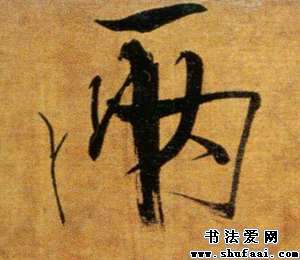 兩
书法爱网
www.shufaai.com